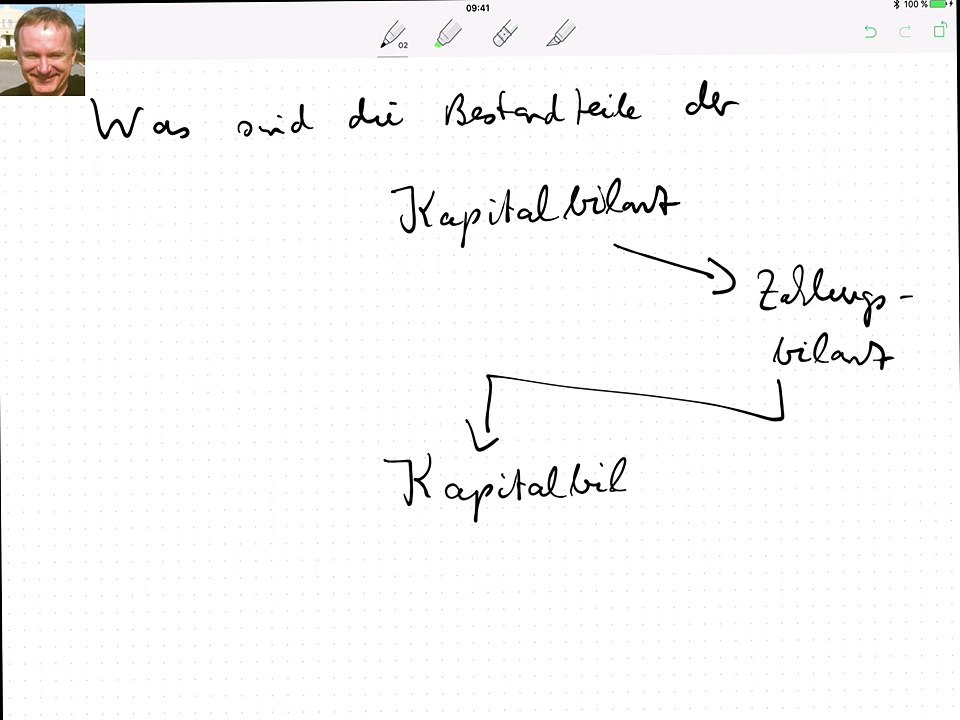 09:41
100 %
02
Was sind die Bestandteile der
Kapitalbilanz
Zahlungs-
bilanz
Kapitalbil